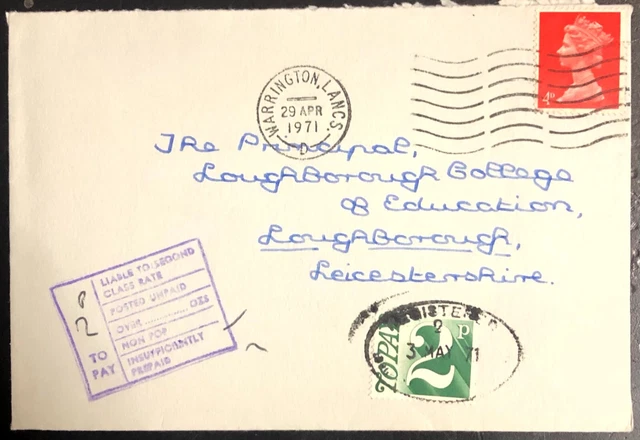 4D
WARRINGTON, LANCS.
29 APR
1971
D
The Principal,
Loughborough College
of Education,
Loughborough,
Leicestershire.
LIABLE TO SECOND
CLASS RATE
POSTED UNPAID
OVER ........... OZS
NON POP
INSUFFICIENTLY
PREPAID
P
2
TO
PAY
REGISTERED
2
3 MAY 71
TO PAY
2P